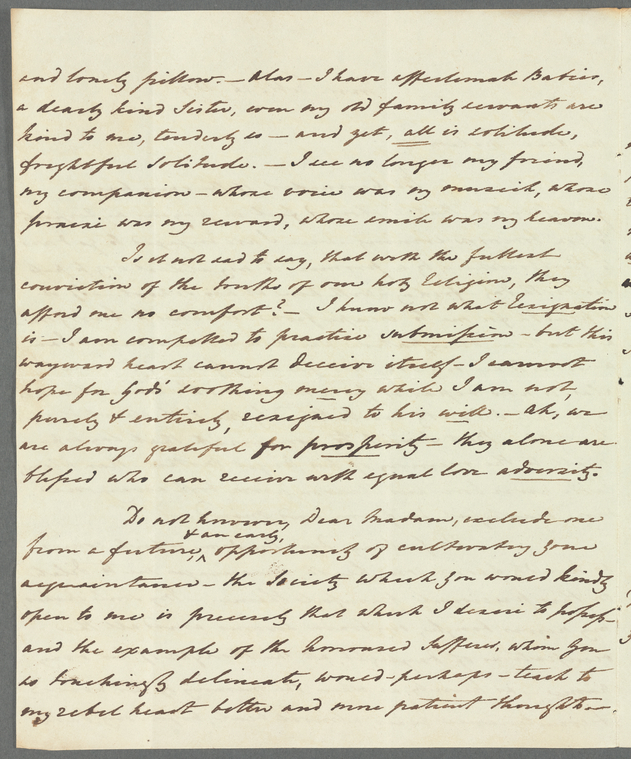 and lonely pillow. — Alas — I have affectionate Babies,
a dearly kind Sister, even my old family servants are
kind to me, tenderly so — and yet, all is solitude,
frightful Solitude. — I see no longer my friend,
my companion — whose voice was my musick, whose
praise was my reward, whose smile was my heaven.
Is it not sad to say, that with the fullest
conviction of the truths of our holy Religion, they
afford me no comfort? — I know not what Resignation
is — I am compelled to practise submission — but this
wayward heart cannot deceive itself — I cannot
hope for God's soothing mercy while I am not,
purely & entirely, resigned to his will. — Ah, we
are always grateful for prosperity — they alone are
blessed who can receive with equal love adversity.
Do not however, Dear Madam, exclude me
& an early,
from a future, ^ opportunity of cultivating your
acquaintance — the Society which you would kindly
open to me is precisely that which I desire to possess —
and the example of the honoured Sufferer, whom you
so touchingly delineate, would — perhaps — teach to
my rebel heart better and more patient thoughts —.